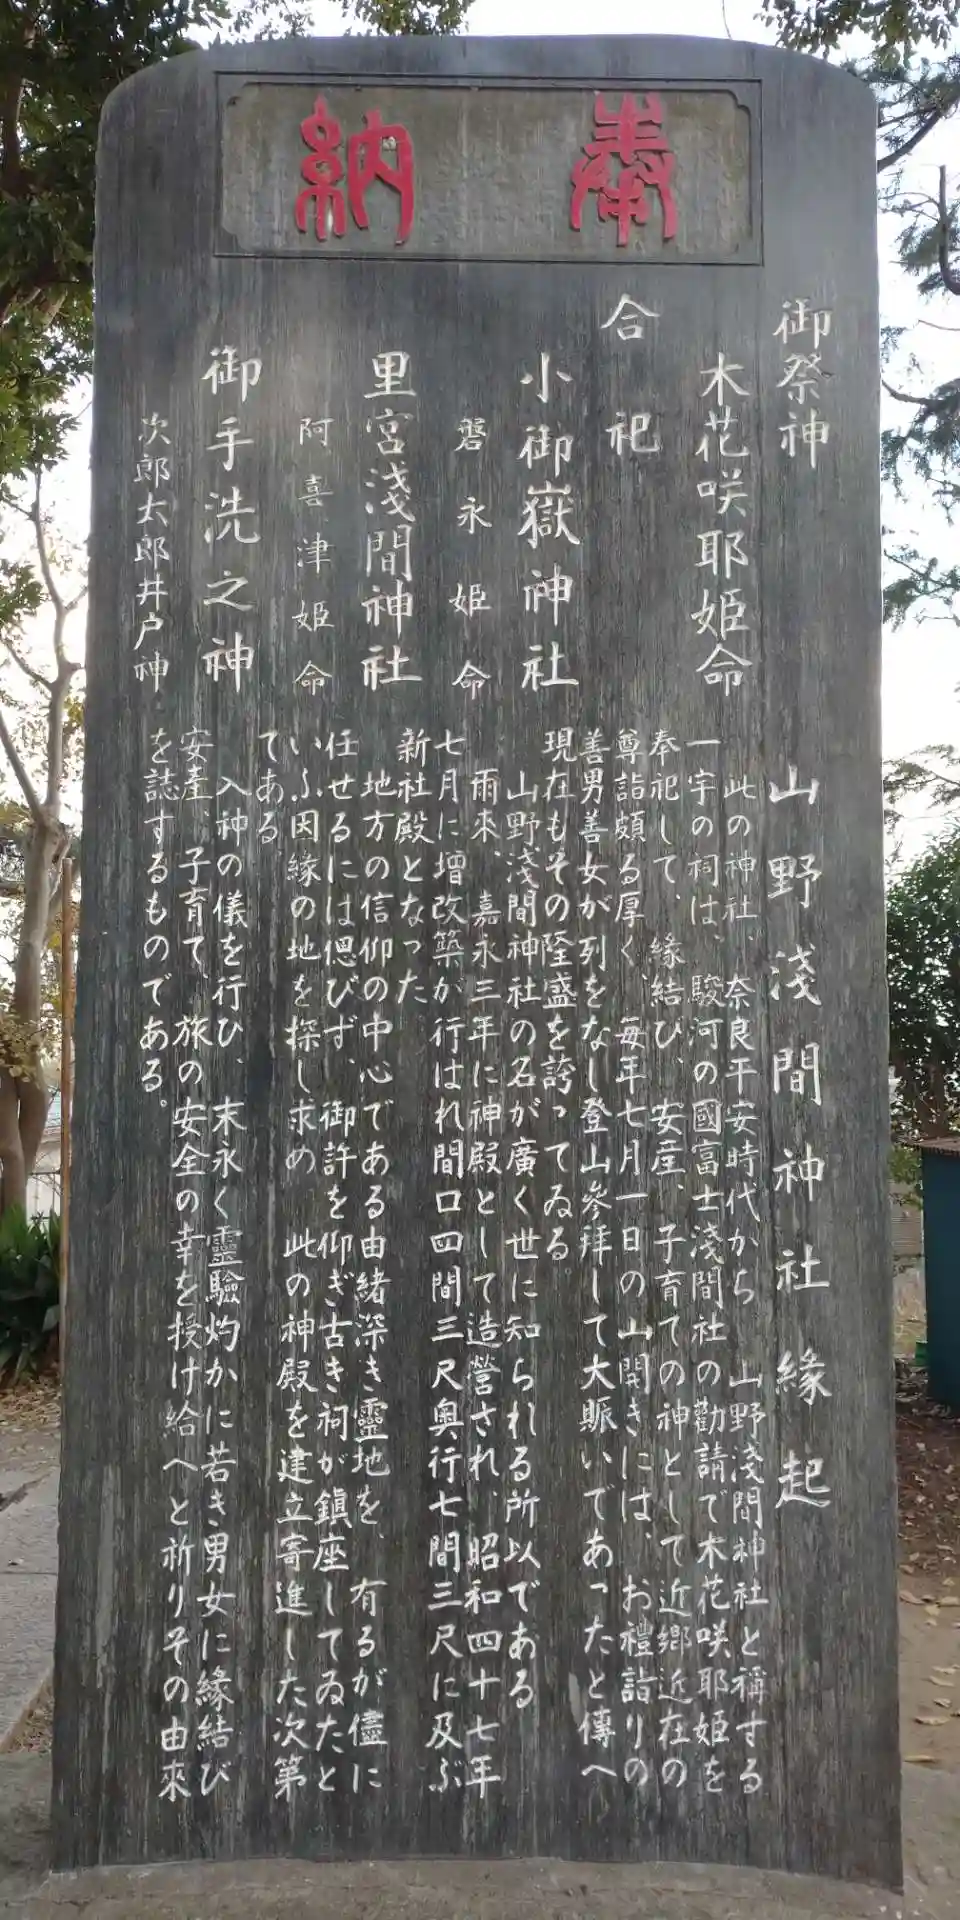 奉納
御祭神
木花咲耶姫命
合祀
小御嶽神社
磐永姫命
里宮浅間神社
阿喜津姫命
御手洗之神
次郎太郎井戸神
山野浅間神社縁起
此の神社、奈良平安時代から山野浅間神社と稱する
一宇の祠は、駿河の國富士浅間社の勸請で木花咲耶姫を
奉祀して、縁結び、安産、子育ての神として近郷近在の
尊詣頗る厚く、毎年七月一日の山開きには、お禮詣りの
善男善女が列をなし登山參拝して大賑いであったと傳へ
現在もその隆盛を誇ってゐる。
山野浅間神社の名が廣く世に知られる所以である
雨來、嘉永三年に神殿として造營され、昭和四十七年
七月に増改築が行はれ間口四間三尺奥行七間三尺に及ぶ
新社殿となった
地方の信仰の中心である由緒深き靈地を、有るが儘に
任せるには偲びず、御許を仰ぎ古き祠が鎮座してゐたと
いふ因縁の地を探し求め、此の神殿を建立寄進した次第
である
入神の儀を行ひ、末永く靈驗灼かに若き男女に縁結び
安産、子育て、旅の安全の幸を授け給へと祈りその由來
を誌するものである。